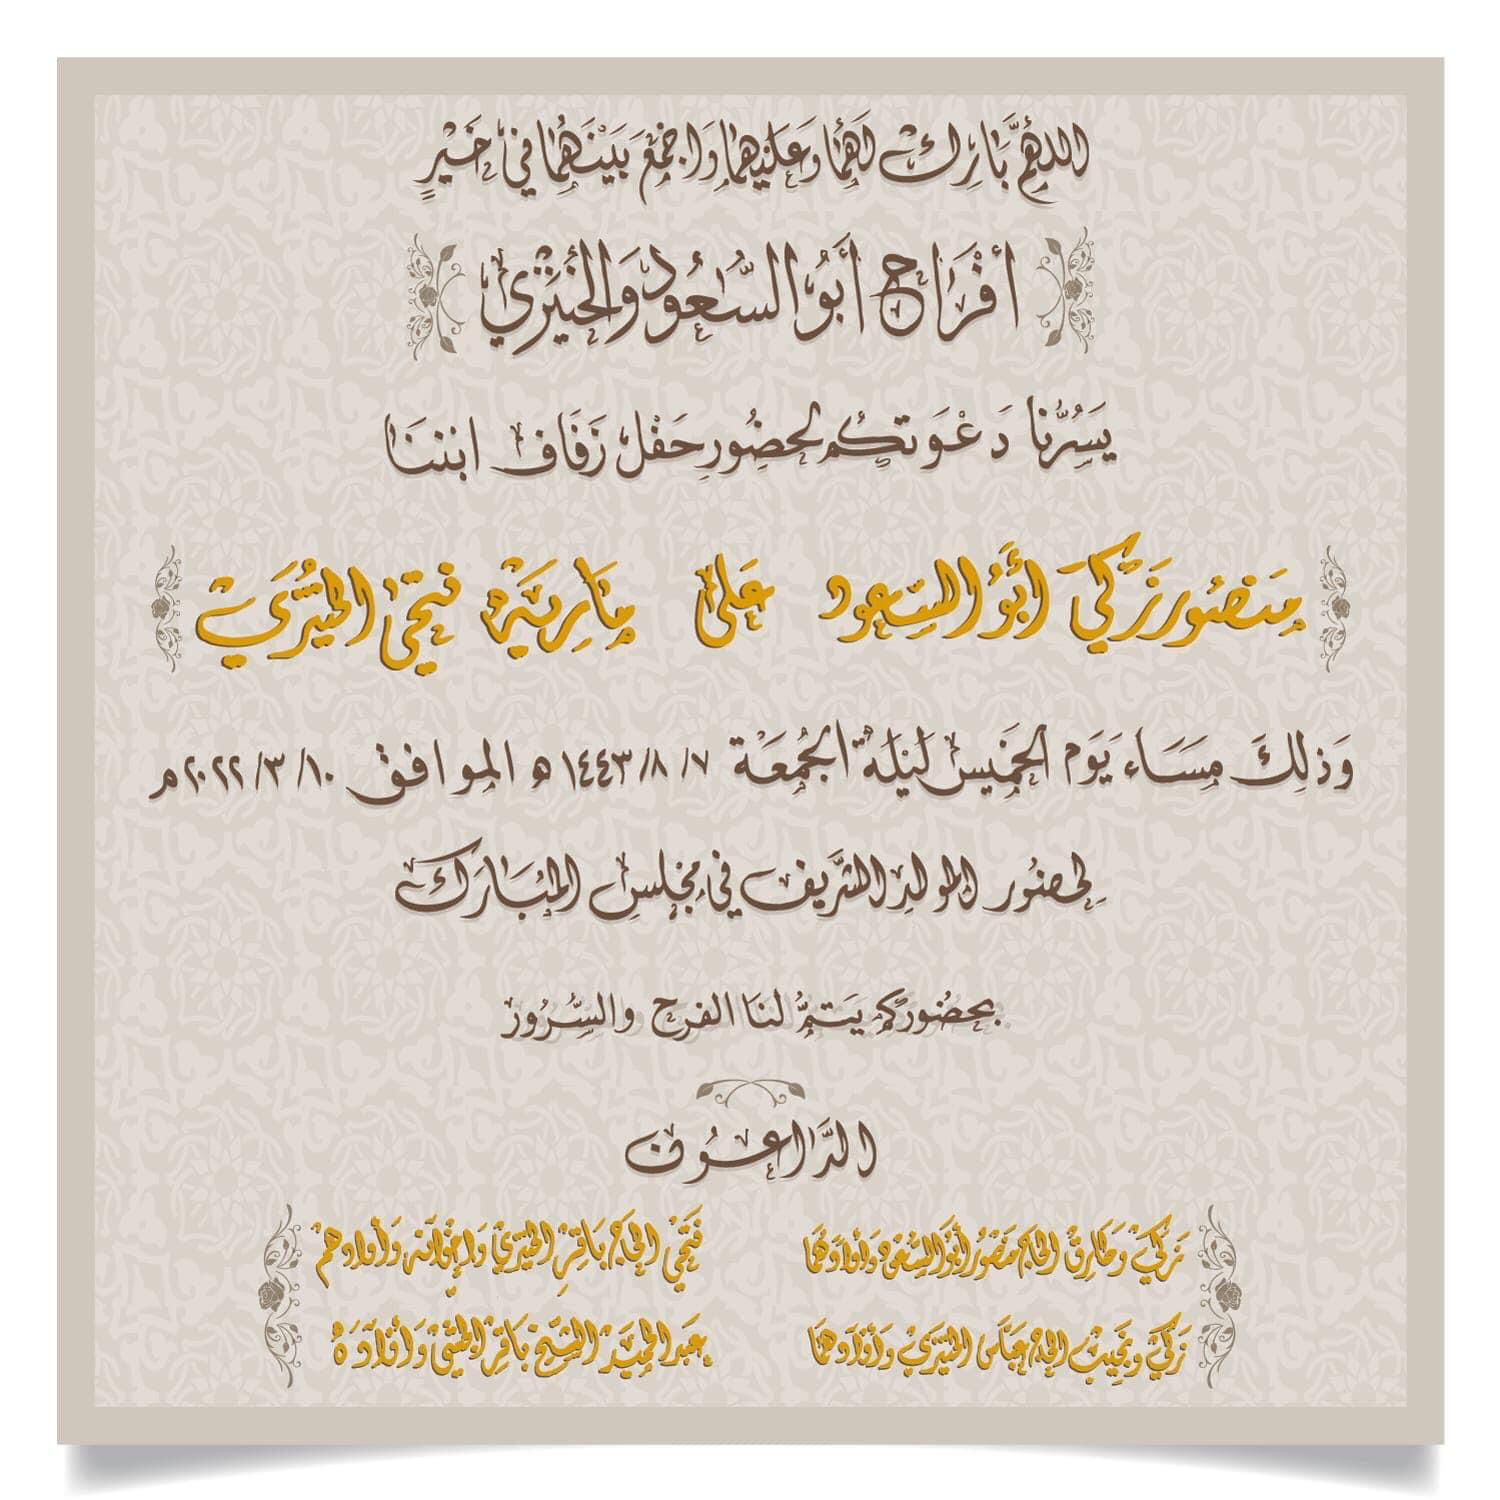 اللهُمَّ بَارِك لَهُمَا وَعَلَيْهِمَا وَاجْمَعْ بَيْنَهُمَا فِي خَيْرٍ
أفْرَاح أَبُو السُّعُود وَالخُنَيْزِي
يَسُرُّنا دَعْوَتكم لحضُورِ حَفْل زَفَاف ابننَا
مَنصُور زَكي أَبُو السّعود عَلى مَاريَة فتحي الخُنَيْزي
وَذلِكَ مسَاء يَوَم الخَمِيس لَيْلَة الجُمعَة ٧/ ٨/ ١٤٤٣ ه الموافق ١٠/ ٣/ ٢٠٢٢ م
لحضُور المولد الشَّريف في مَجْلس المُبَارَك
بحضُوركم يَتمُّ لنَا الفرح والسُّرُور
الدَّاعُون
زَكيّ وَطَارِق الحَاج مَنصُور أَبُو السُّعُود وَأَولادهُمَا
فَتْحي الحَاج بَاقِر الخُنَيْزي وَإخْوَانه وَأولادهم
زَكيّ وَنَجيب الحَاج عَبَّاس الخُنَيْزي وَأَوْلادهمَا
عَبد الحَميد الشَّيخ بَاقِر وَأَوْلَادهُ